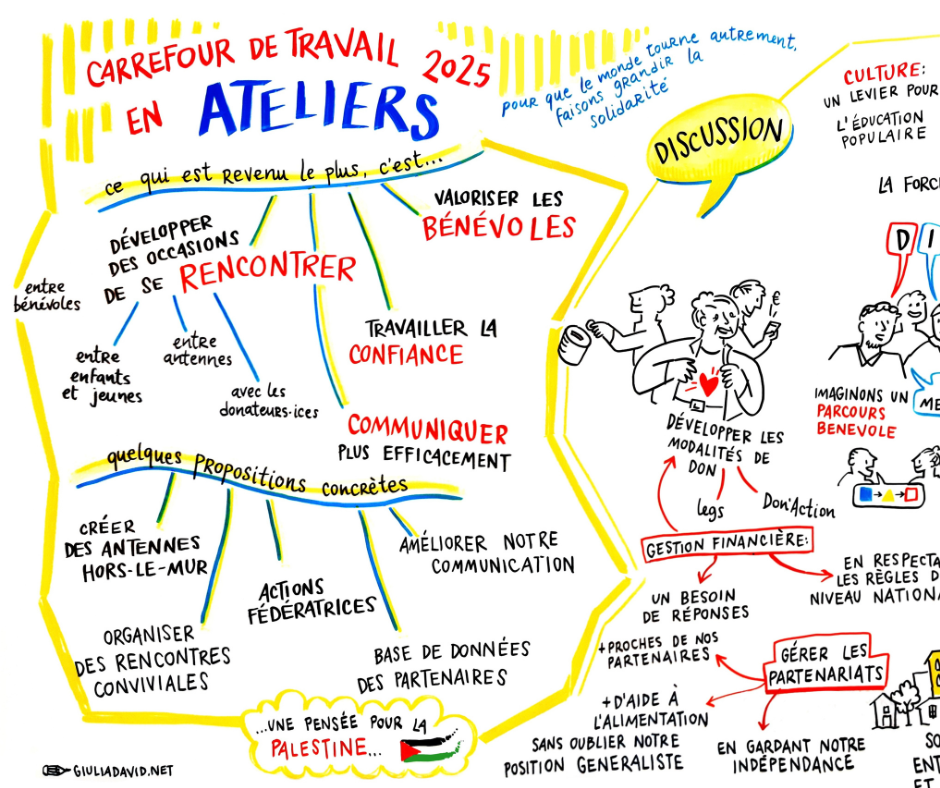 CARREFOUR DE TRAVAIL 2025
EN ATELIERS
pour que le monde tourne autrement,
faisons grandir la
solidarité
ce qui est revenu le plus, c'est...
DÉVELOPPER
DES OCCASIONS
DE SE RENCONTRER
entre
bénévoles
entre
enfants
et jeunes
entre
antennes
avec les
donateurs·ices
VALORISER LES
BÉNÉVOLES
TRAVAILLER LA
CONFIANCE
COMMUNIQUER
PLUS EFFICACEMENT
quelques propositions concrètes
CRÉER
DES ANTENNES
HORS-LE-MUR
ORGANISER
DES RENCONTRES
CONVIVIALES
ACTIONS
FÉDÉRATRICES
BASE DE DONNÉES
DES PARTENAIRES
AMÉLIORER NOTRE
COMMUNICATION
...UNE PENSÉE POUR LA
PALESTINE...
GIULIADAVID.NET
DISCUSSION
CULTURE:
UN LEVIER POUR
L'ÉDUCATION
POPULAIRE
LA FORC
D I
IMAGINONS UN
PARCOURS
BENEVOLE
ME
€
DÉVELOPPER LES
MODALITÉS DE
DON
legs
Don'Action
GESTION FINANCIÈRE:
UN BESOIN
DE RÉPONSES
EN RESPECTA
LES RÈGLES D
NIVEAU NATION
GÉRER LES
PARTENARIATS
+PROCHES DE NOS
PARTENAIRES
+D'AIDE À
L'ALIMENTATION
SANS OUBLIER NOTRE
POSITION GENERALISTE
EN GARDANT NOTRE
INDÉPENDANCE
SO
ENT
ET